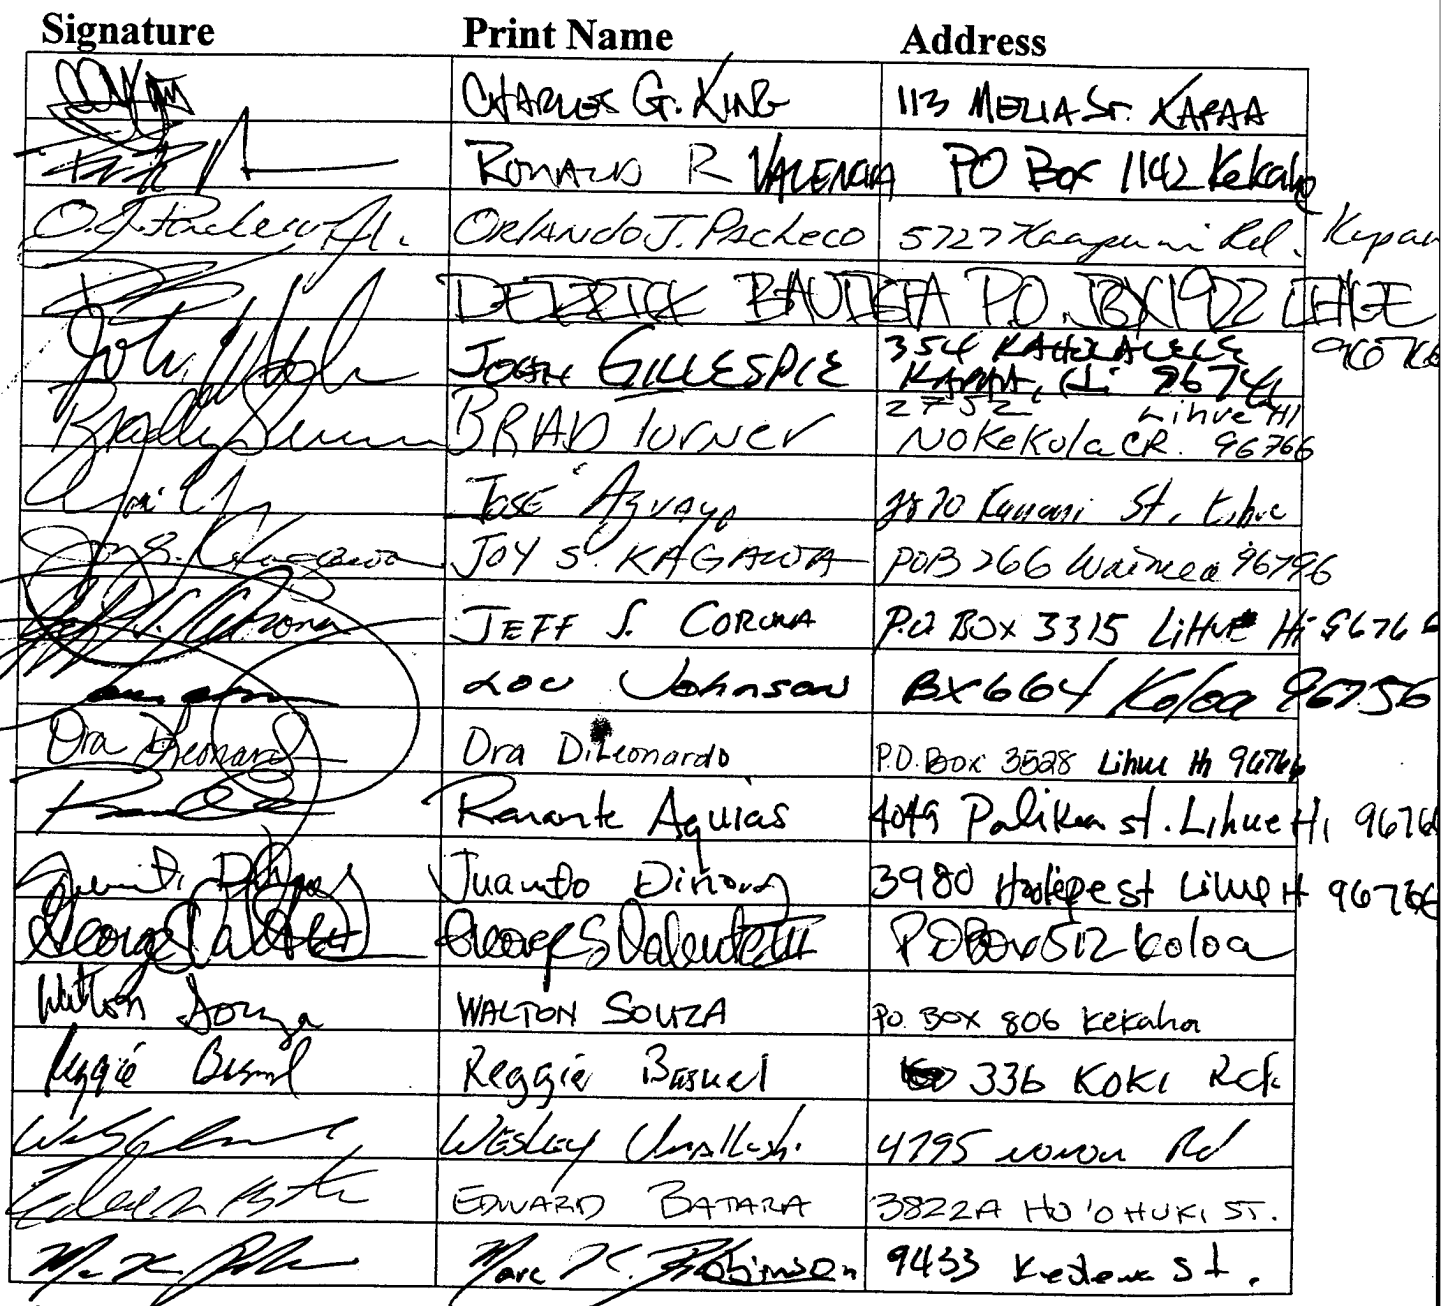 Signature Print Name Address
CHARLES G. KING 113 MELIA St. KAPAA
RONALD R VALENCIA PO Box 1142 Kekaha
O.J. Pacheco Jr. ORLANDO J. PACHECO 5727 Kaapuni Rd. Kapaa
DERRICK BAUTISTA P.O. BX 1922 LIHUE
96766
JOSH GILLESPIE 354
KAPAA, Hi 96746
BRAD TURNER 2752 Lihue HI
NOKEKULA CR. 96766
JOSÉ Aguayo St, Lihue
JOY S. KAGAWA POB 266 Waimea 96796
JEFF S. CORONA P.O BOX 3315 LiHUE Hi 96766
LOU Johnson BX 664 Koloa 96756
Ora DiLeonardo Ora DiLeonardo P.O. Box 3528 Lihue HI 96766
Aquias 4049 Palikea st. Lihue Hi 96766
Juanito 3980 st Lihue H 96766
George Valente George S Valente III PO Box 512 Koloa
Walton Souza WALTON SOUZA PO. BOX 806 Kekaha
Reggie Reggie 336 KOKI Rd.
WESLEY 4795 Rd
EDWARD BATARA 3822A HO'OHUKI ST.
Marc K. Robinson 9433 st.